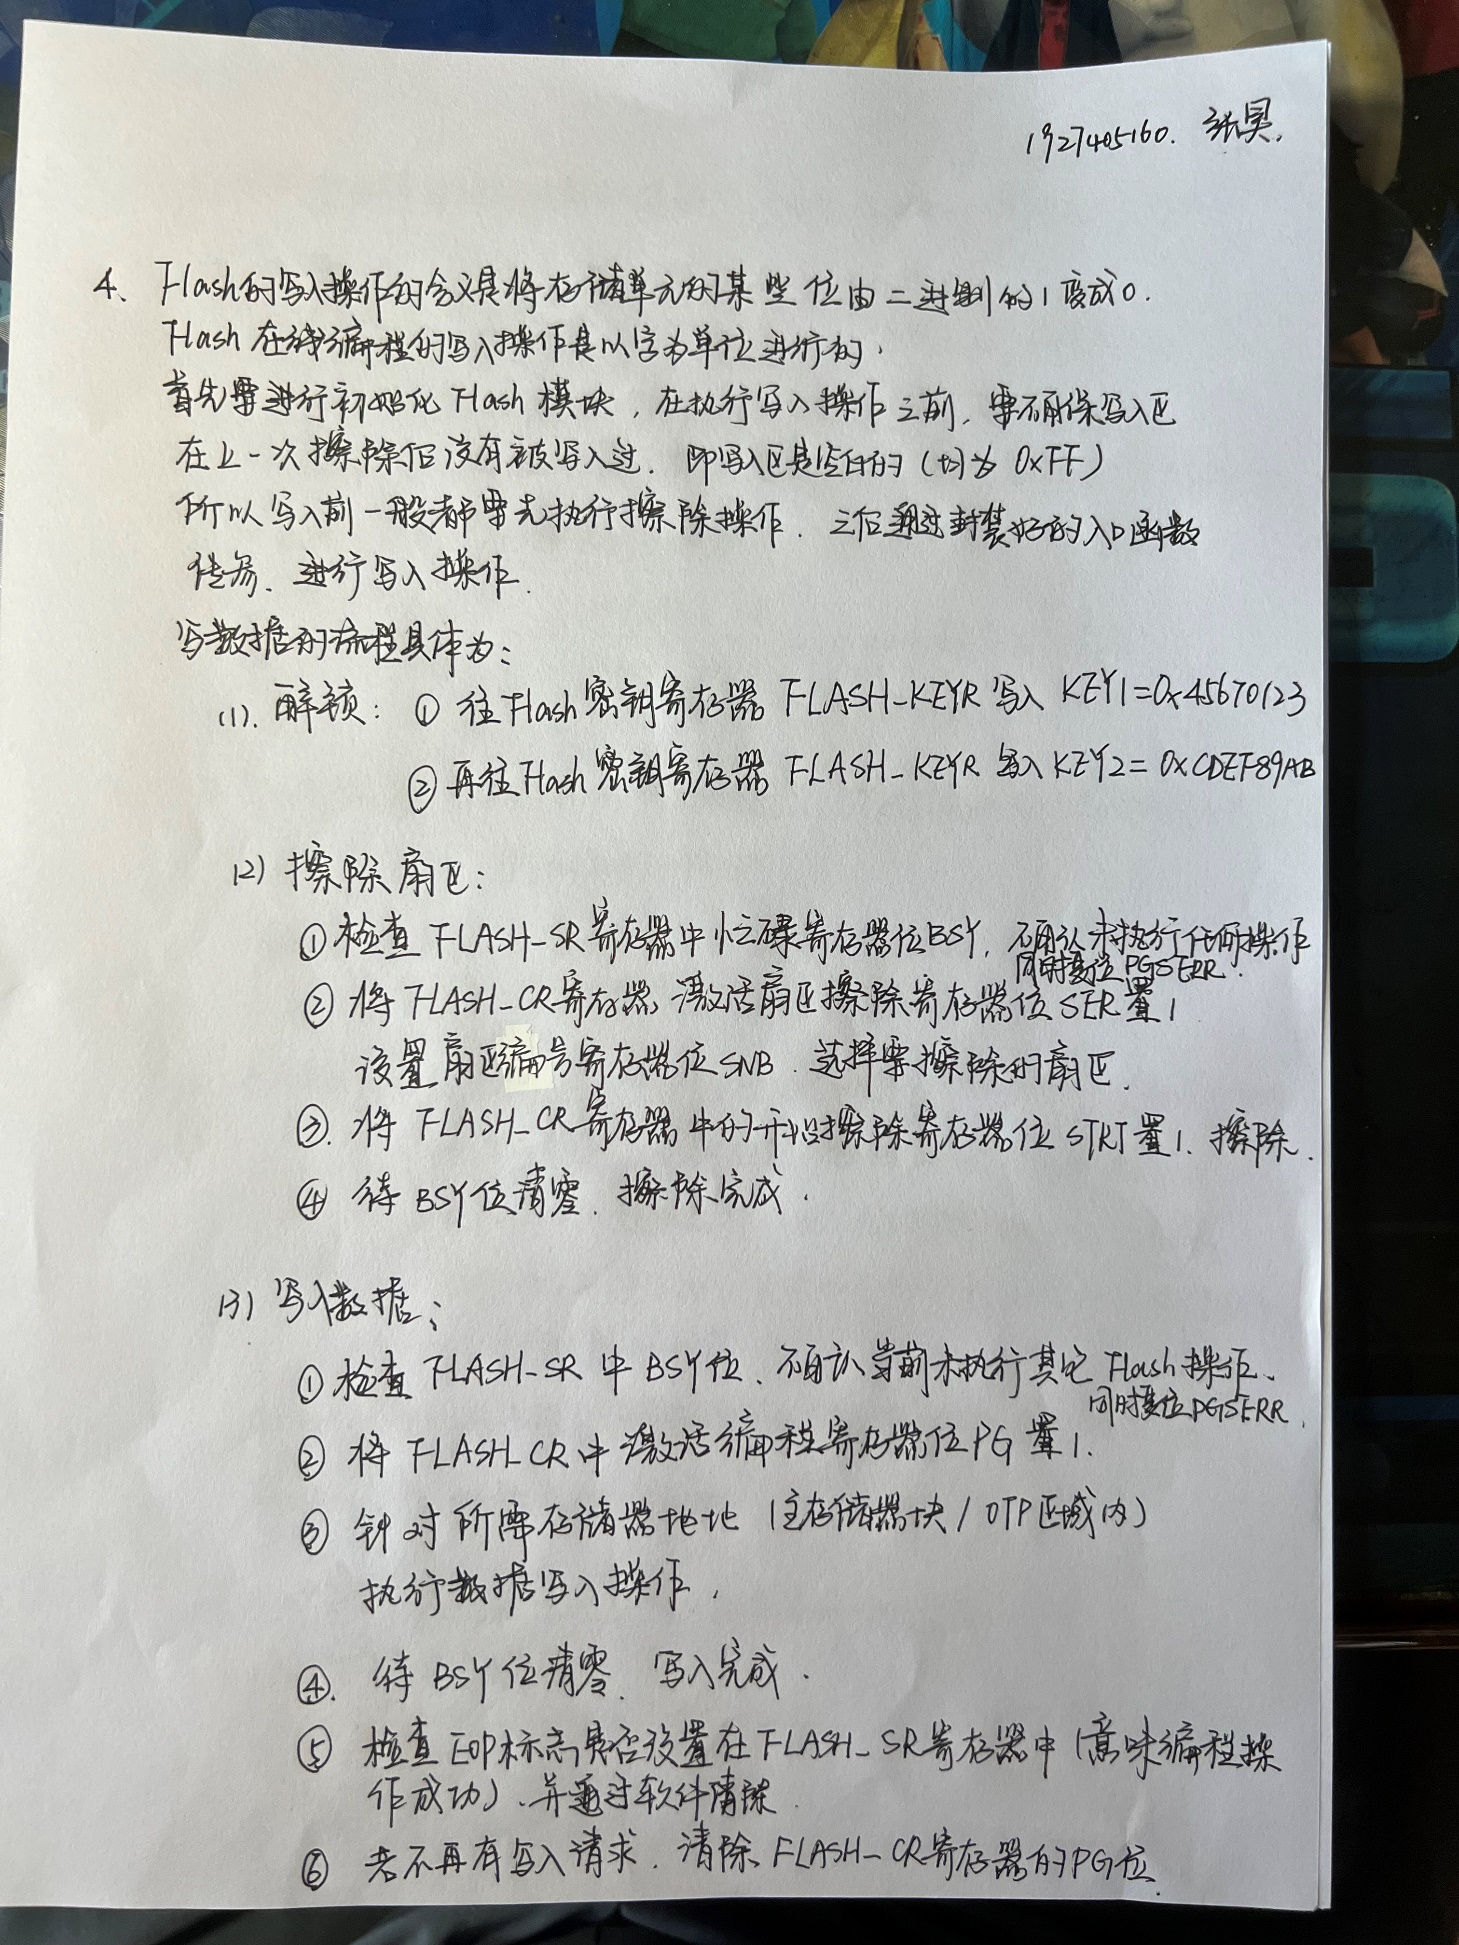 1927405160. 张昊.
4、Flash的写入操作的含义是将存储单元的某些位由二进制的1变成0.
Flash在线编程的写入操作是以字为单位进行的.
首先要进行初始化Flash模块，在执行写入操作之前，要确保写入区
在上一次擦除后没有被写入过. 即写入区是空白的（均为0xFF）
所以写入前一般都要先执行擦除操作. 之后通过封装好的入口函数
传参、进行写入操作.
写数据的流程具体为：
(1). 解锁： ① 往Flash密钥寄存器 FLASH_KEYR 写入 KEY1=0x45670123
② 再往Flash密钥寄存器 FLASH_KEYR 写入 KEY2=0xCDEF89AB
(2) 擦除扇区：
① 检查 FLASH_SR寄存器中忙碌寄存器位BSY, 确认未执行任何操作
同时复位PGSERR.
② 将FLASH_CR寄存器 激活扇区擦除寄存器位SER置1
设置扇区编号寄存器位SNB. 选择要擦除的扇区.
③. 将 FLASH_CR寄存器中的开始擦除寄存器位 STRT置1. 擦除.
④ 待BSY位清零. 擦除完成.
(3) 写入数据：
① 检查 FLASH_SR中BSY位、确认当前未执行其它 Flash操作、
同时复位PGSERR.
② 将FLASH_CR中激活编程寄存器位PG置1.
③ 针对所需存储器地址（主存储器块/OTP区域内）
执行数据写入操作.
④. 待BSY位清零、写入完成.
⑤ 检查EOP标志是否设置在FLASH_SR寄存器中（意味编程操
作成功）、并通过软件清除.
⑥ 若不再有写入请求. 清除FLASH_CR寄存器的PG位